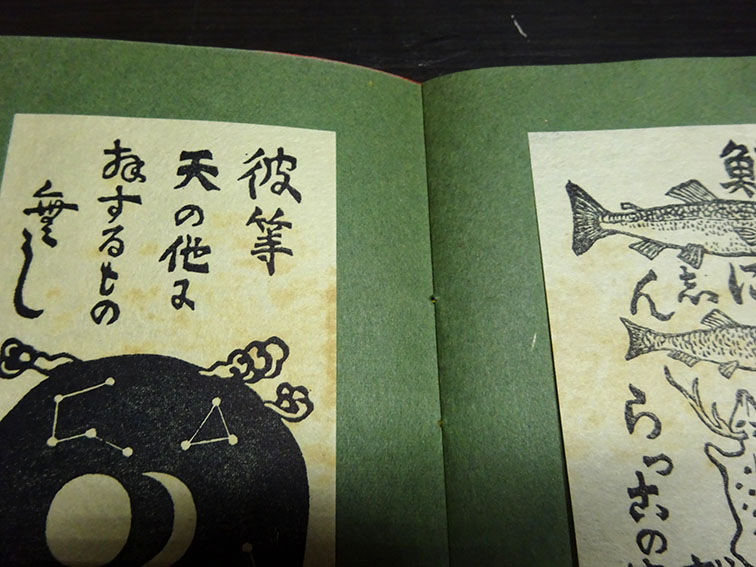 彼等
天の他に
するもの
無し
に志ん
らっこの